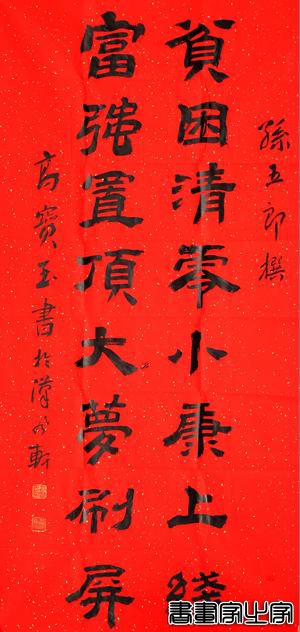 孫五郎撰
貧困清零小康上綫
富強置頂大夢刷屏
高寶玉書於漢風軒
書畫家出字